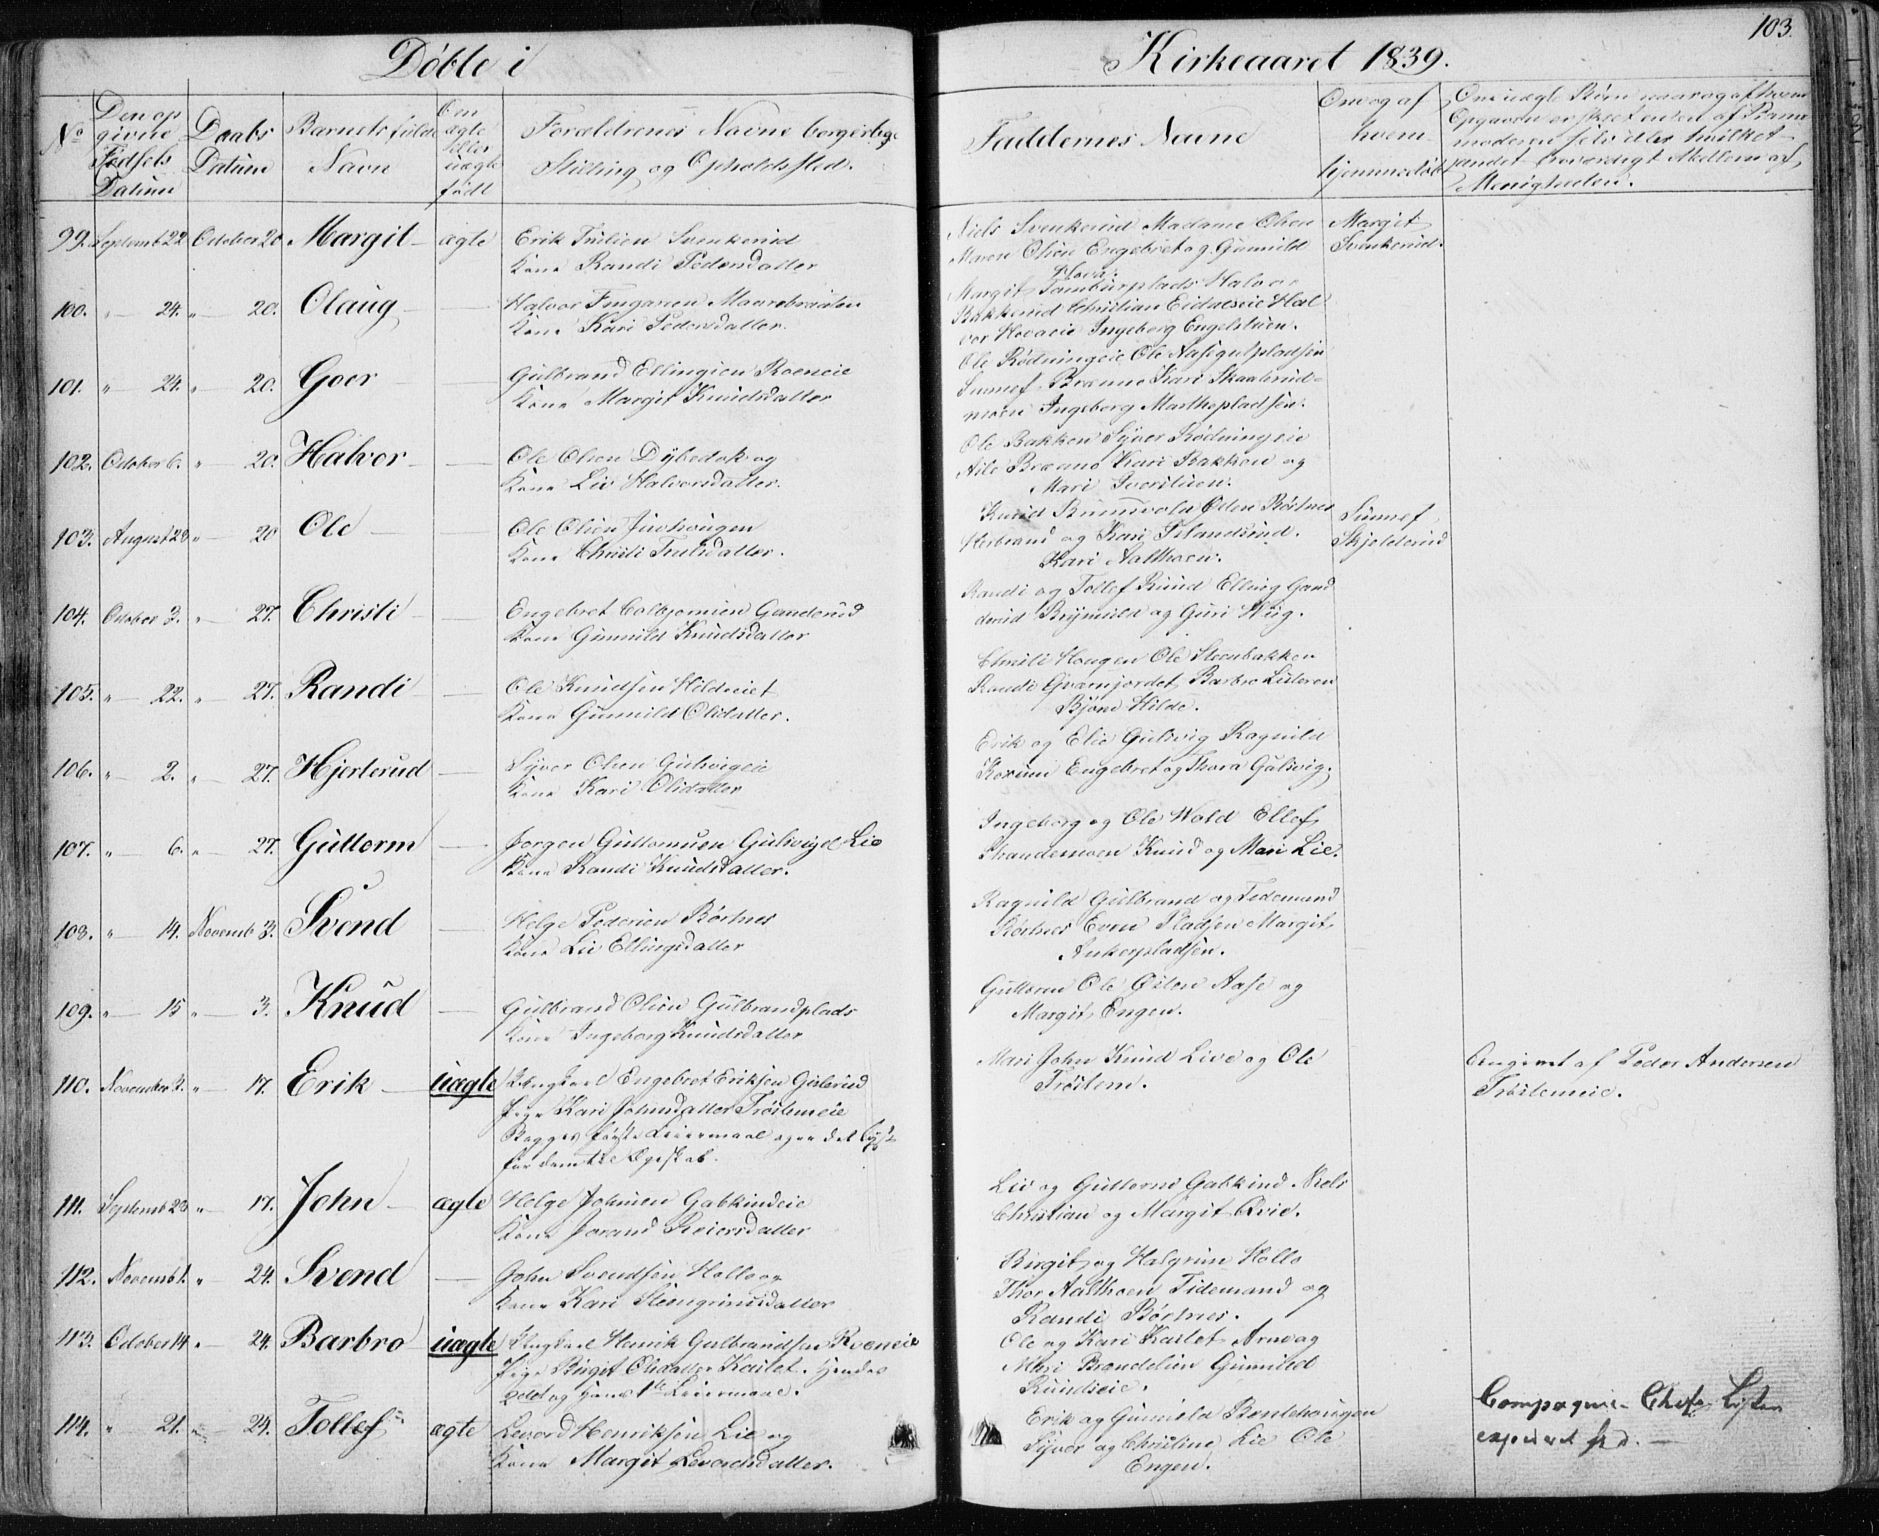 103.
Døbte i Kirkeaaret 1839.
No
Den op
givne
Fødsels
Datum
Daabs
Datum
Barnets fulde
Navn
Om
ægte
eller
uægte
født
Forældrenes Navne borgerlige
Stilling og Opholdssted.
Faddernes Navne
Om og af
hvem
hjemmedøbt
Om uægte Børn naar og af hvem
Opgaven er skeet enten af Barne
moderen selv eller hvilket
andet troværdigt Medlem af
Menigheden.
99. Septemb 22 October 20 Margit ægte Erik Svenkerud
Kone Randi Pedersdatter
Niels Svenkerud Madame Olsen
Maren Olsen Engebret og Gunnild
Margit
Svenkerud.
100. " 24. " 20. Olaug — Halvor
Kone Kari Pedersdatter.
Margit Halvor
Bakkerud Christian Hal
vor Ingeborg
101. " 24. " 20. Goer — Gulbrand Ellingsen Roeneie
Kone Margit Knudsdatter
Ole Rødningeie Ole
Kari
Ingeborg Marthepladsen.
102. October 6. " 20. Halvor — Ole Olsen og
Kone Liv Halvorsdatter.
Ole Bakken Syver Rødningeie
Kari Bakken og
Mari
103. August 23 " 20 Ole — Ole Olsen
Kone Christi
Knud Børtnes
Herbrand og Kari
Kari Aalthoen.
Skjelderud
104. October 3. " 27. Christi — Engebret Ganderud
Kone Gunnild Knudsdatter
Randi og Tollef Ruud Elling Gand
derud Brynild og Guri Hug.
105. " 22. " 27. Randi — Ole Knudsen Hildeeiet
Kone Gunnild Olsdatter.
Christi Haugen Ole Steenbakken
Randi Qvernjordet Barbro
Bjørn Hilde.
106. " 2. " 27. Hjerterud — Syver Olsen Gulsvigeie
Kone Kari Olsdatter
Erik og Elie Gulsvig Ragnild
Engebret og Thora Gulsvig.
107. " 6. " 27. Guttorm — Jørgen Guttormsen Gulsvigeie Lie
Kone Randi Knudsdatter.
Ingeborg og Ole Wold Ellef
Strandemoen Knud og Mari Lie.
108. " 14. Novemb 3. Svend — Helge Pedersen Børtnes
Kone Liv Ellingsdatter
Ragnild Gulbrand og Tidemand
Børtnes Even Pladsen Margit
Ankerpladsen.
109. " 15 " 3. Knud — Gulbrand Olsen Gulbrandplads
Kone Ingeborg Knudsdatter
Guttorm Ole Aase og
Margit Engen.
110. November 3. " 17. Erik — uægte Ungkarl Engebret Eriksen Gislerud
Pige Kari Johnsdatter Trøstemeie
Begges første Leiermaal og er det lyst
for dem til Ægteskab.
Mari John Knud Live og Ole
Trøstem.
Angivet af Peder Andersen
Trøstemeie.
111. Septemb 23 " 17. John — ægte Helge Johnsen Gabkindeie
Kone Jorand Reiersdatter
Liv og Guttorm Gabkind Niels
Christian og Margit Qvie.
112. Novemb 1. " 24. Svend — John Svendsen Hollo og
Kone Kari Steingrimsdatter
Birgit og Halgrim Hollo
Thor Aalthoen Tidemand og
Randi Børtnes.
113. October 14. " 24. Barbro uægte Ungkarl Henrik Gulbrandsen Roeneie
Pige Birgit Olsdatter Kaslet. Hendes
2det og hans 1ste Leiermaal.
Ole og Kari Kaslet Arne og
Mari Gunnild
114. " 21. " 24. Tollef ægte Levord Henriksen Lie og
Kone Margit Levordsdatter.
Erik og Gunnild Bentehaugen
Syver og Christine Lie Ole
Engen.
Compagnie Chefs Listen